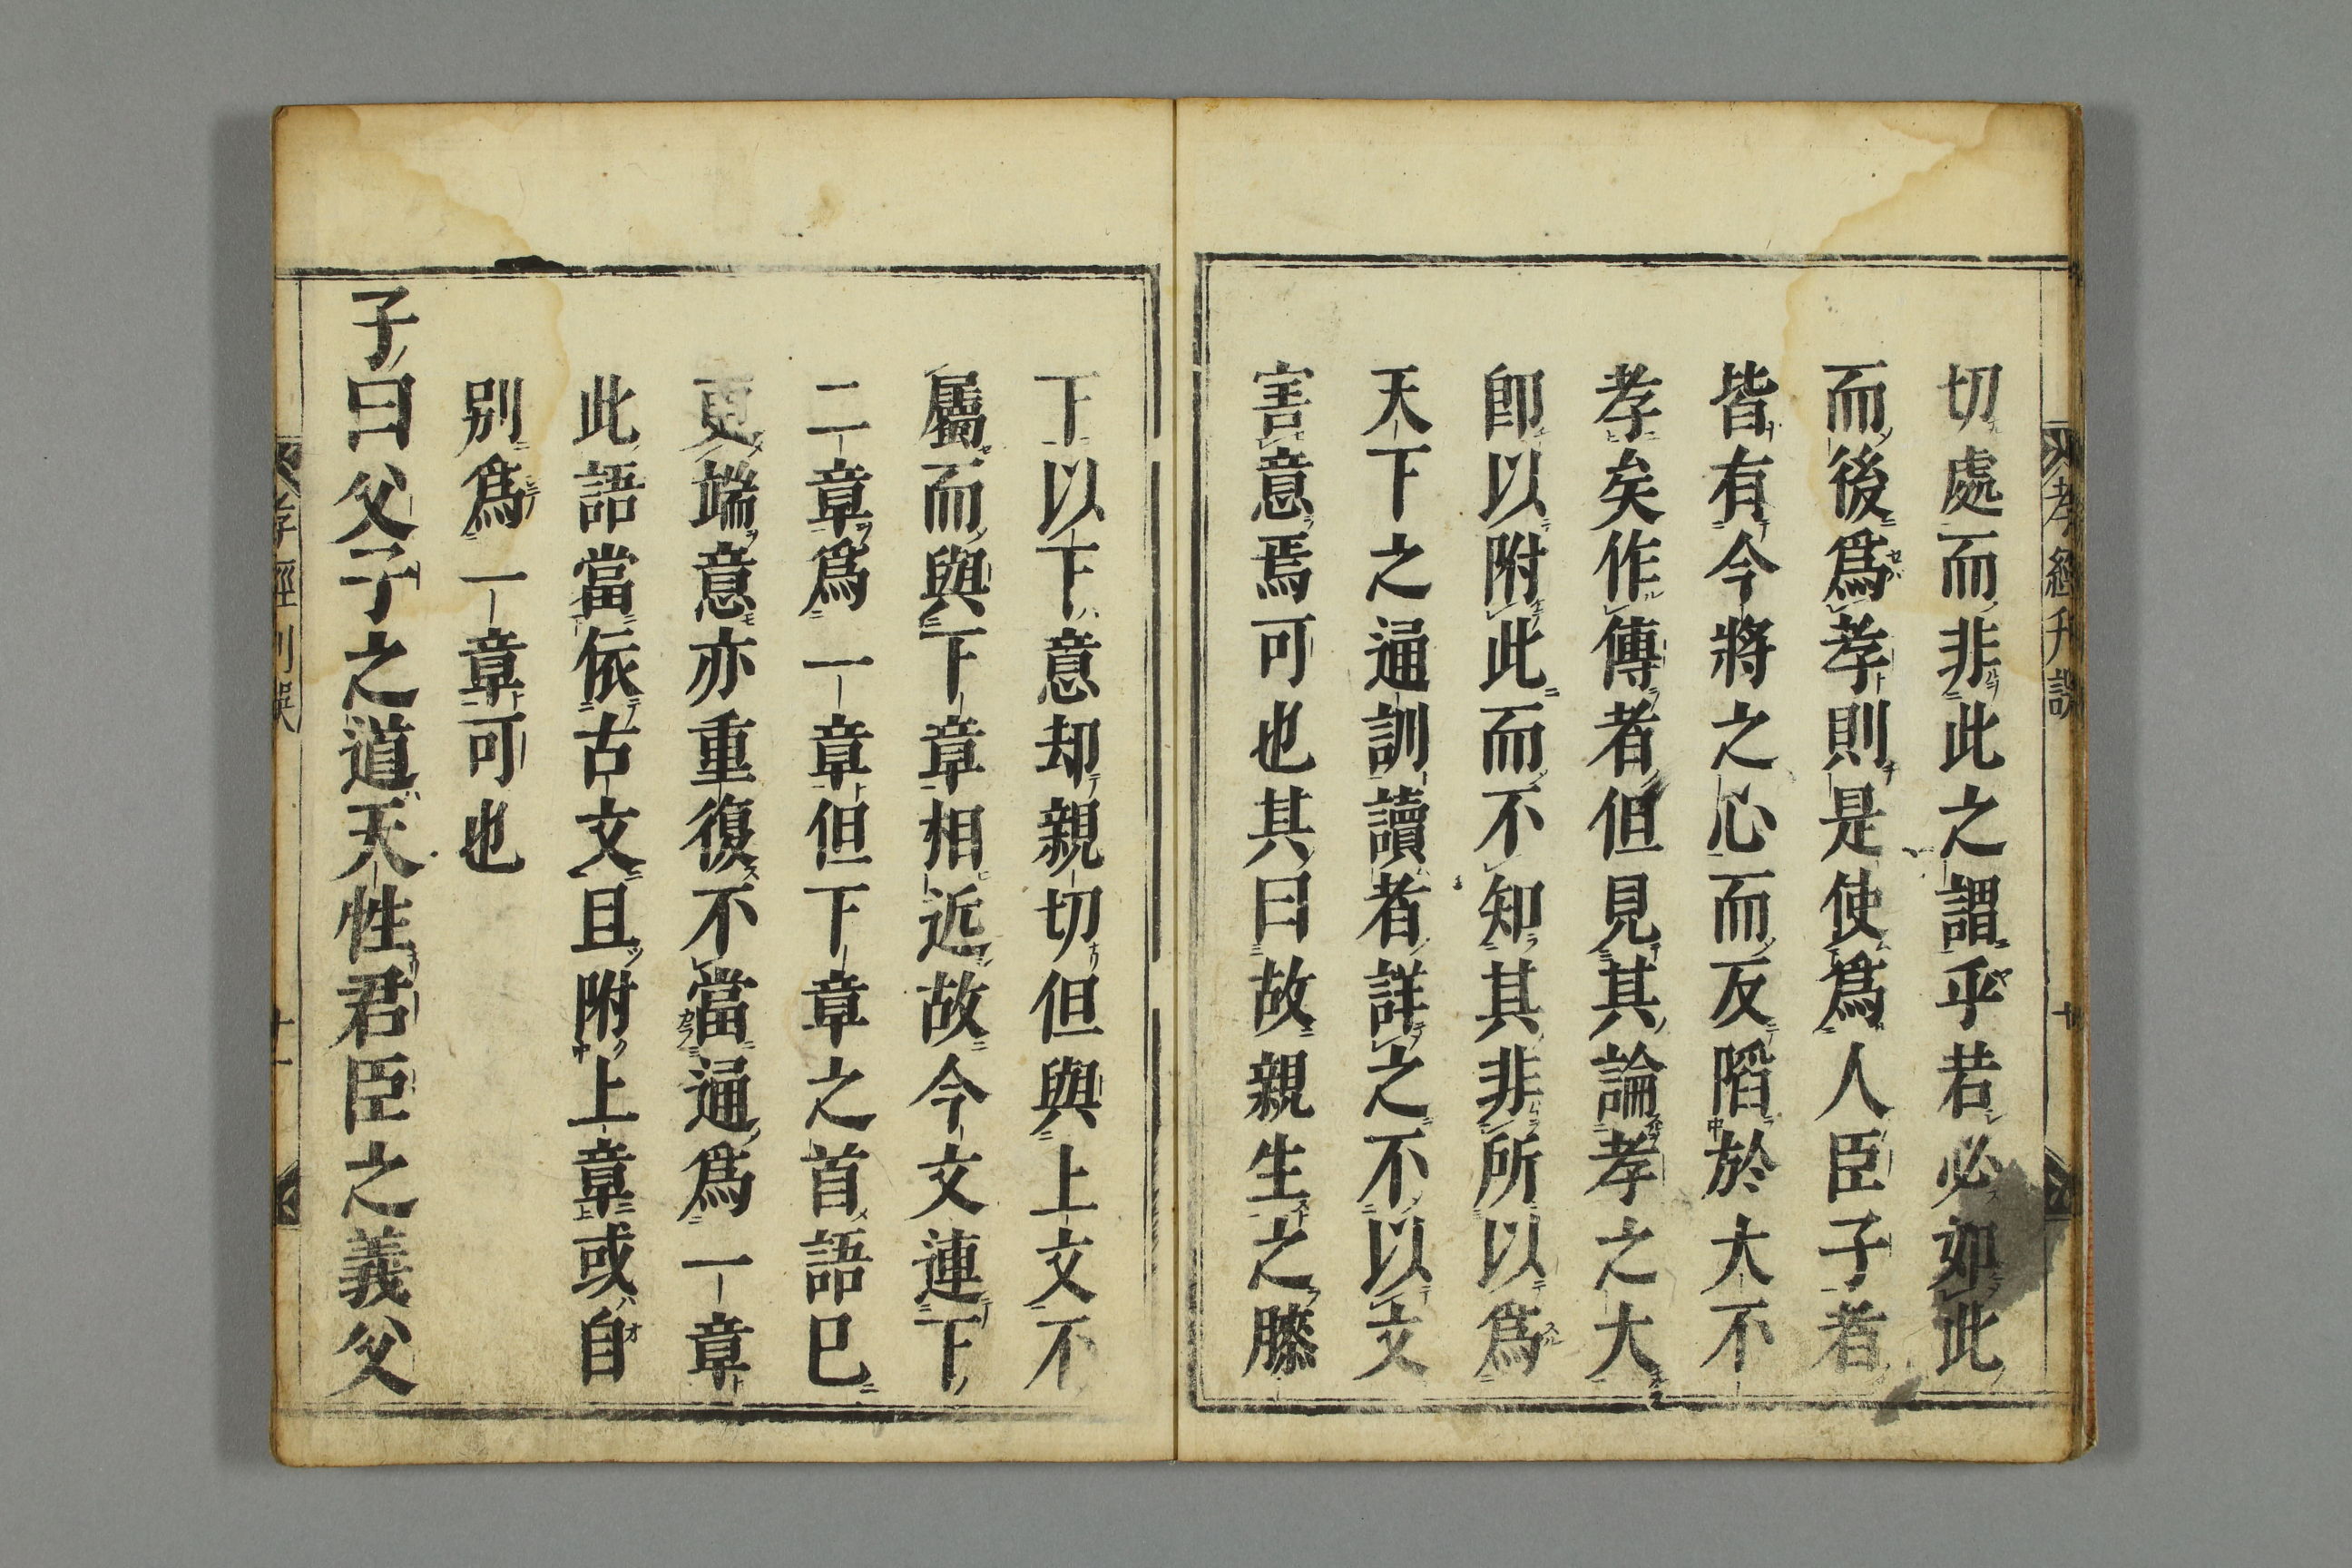 孝經刊誤
十
切處而非此之謂乎若必如此
而後爲孝則是使爲人臣子者
皆有今將之心而反陷於大不
孝矣作傳者但見其論孝之大
即以附此而不知其非所以爲
天下之通訓讀者詳之不以文
害意焉可也其曰故親生之膝
下以下意却親切但與上文不
屬而與下章相近故今文連下
二章爲一章但下章之首語已
更端意亦重復不當通爲一章
此語當依古文且附上章或自
别爲一章可也
子曰父子之道天性君臣之義父
孝經刊誤
十一